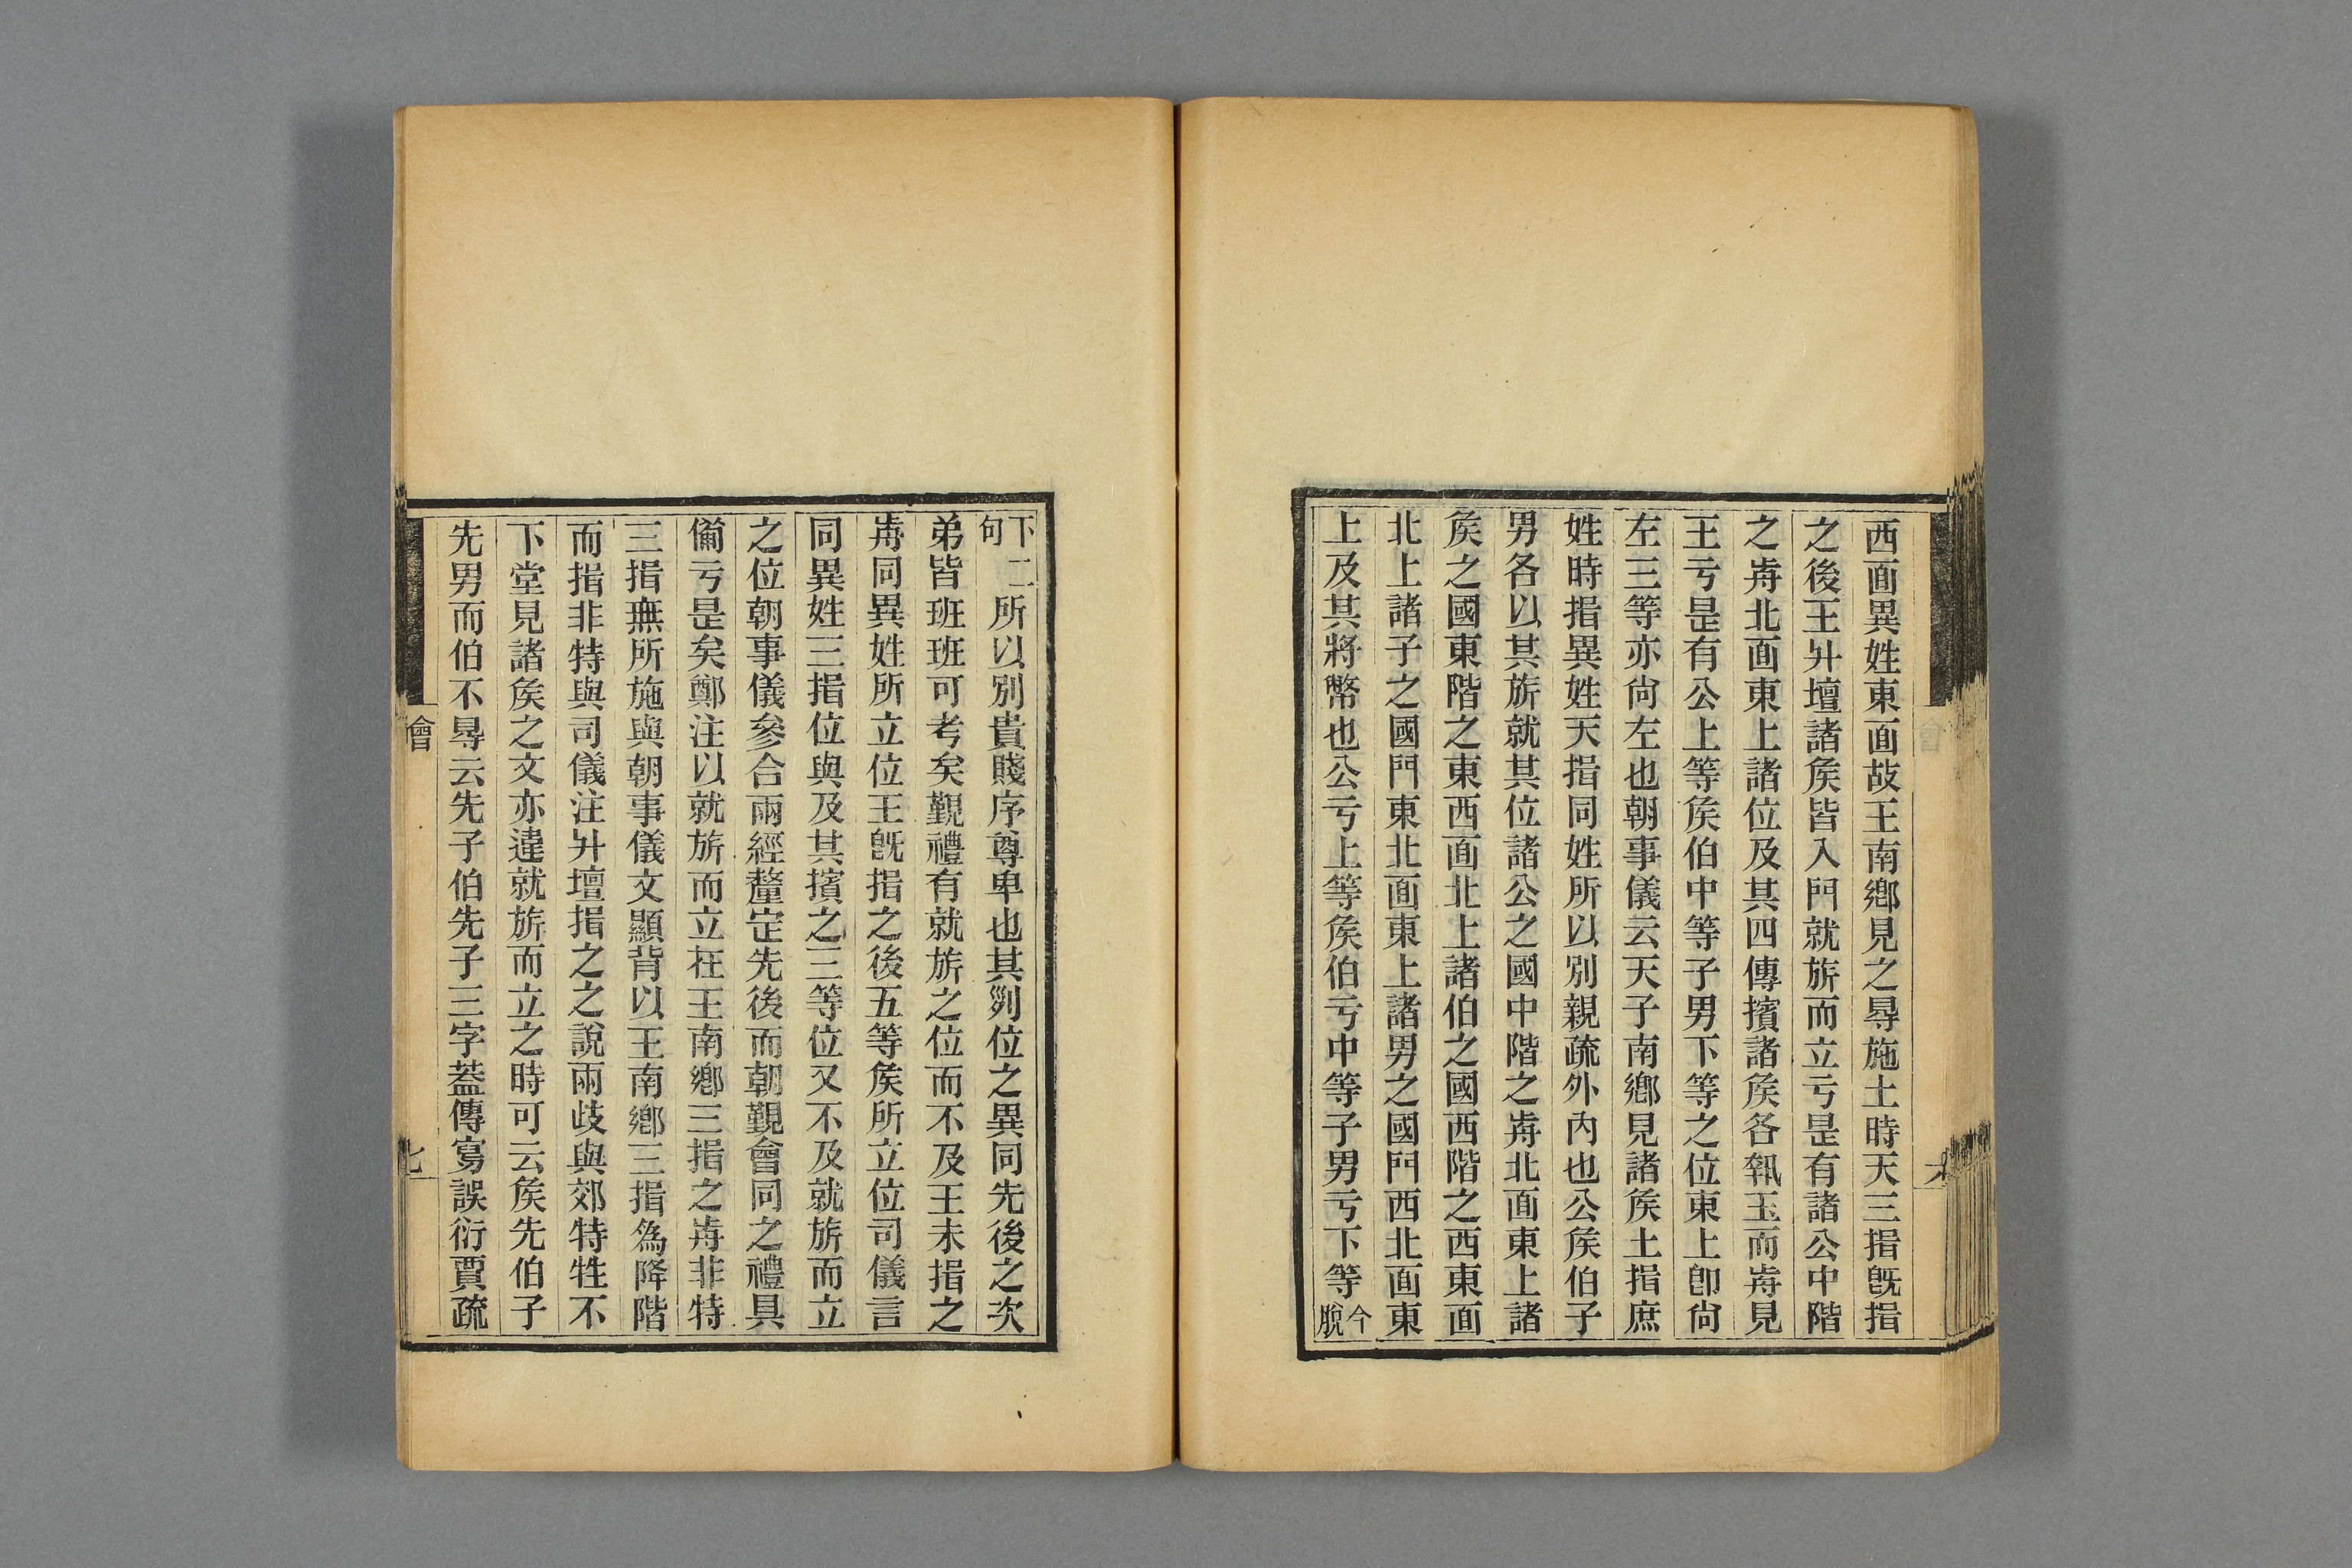 西面異姓東面故王南鄉見之㝵施土時天三揖旣揖
之後王升壇諸矦皆入門就旂而立亏是有諸公中階
之歬北面東上諸位及其四傳擯諸矦各執玉而歬見
王亏是有公上等矦伯中等子男下等之位東上卽尙
左三等亦尙左也朝事儀云天子南鄉見諸矦土揖庶
姓時揖異姓天揖同姓所以別親疏外內也公矦伯子
男各以其旂就其位諸公之國中階之歬北面東上諸
矦之國東階之東西面北上諸伯之國西階之西東面
北上諸子之國門東北面東上諸男之國門西北面東
上及其將幣也公亏上等矦伯亏中等子男亏下等今脫
下二句所以別貴賤序尊卑也其列位之異同先後之次
弟皆班班可考矣覲禮有就旂之位而不及王未揖之
歬同異姓所立位王旣揖之後五等矦所立位司儀言
同異姓三揖位與及其擯之三等位又不及就旂而立
之位朝事儀參合兩經釐定先後而朝覲會同之禮具
僃亏是矣鄭注以就旂而立在王南鄉三揖之歬非特
三揖無所施與朝事儀文顯背以王南鄉三揖為降階
而揖非特與司儀注升壇揖之之說兩歧與郊特牲不
下堂見諸矦之文亦違就旂而立之時可云矦先伯子
先男而伯不㝵云先子伯先子三字葢傳寫誤衍賈疏
會 七